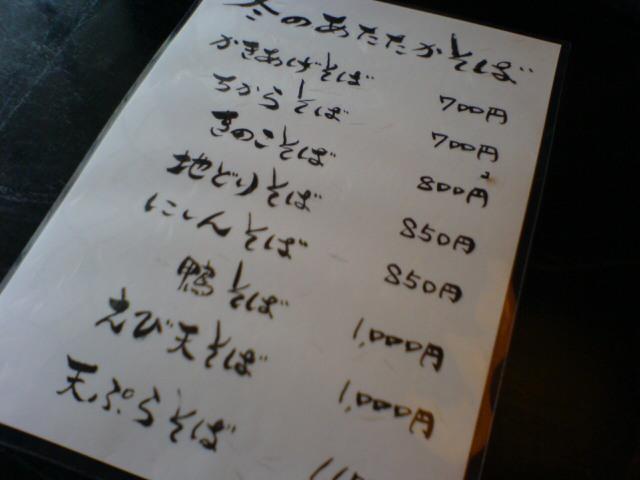 冬のあたたかそば
かきあげそば 700円
ちからそば 700円
きのこそば 800円
地どりそば 850円
にしんそば 850円
鴨そば 1,000円
えび天そば 1,000円
天ぷらそば